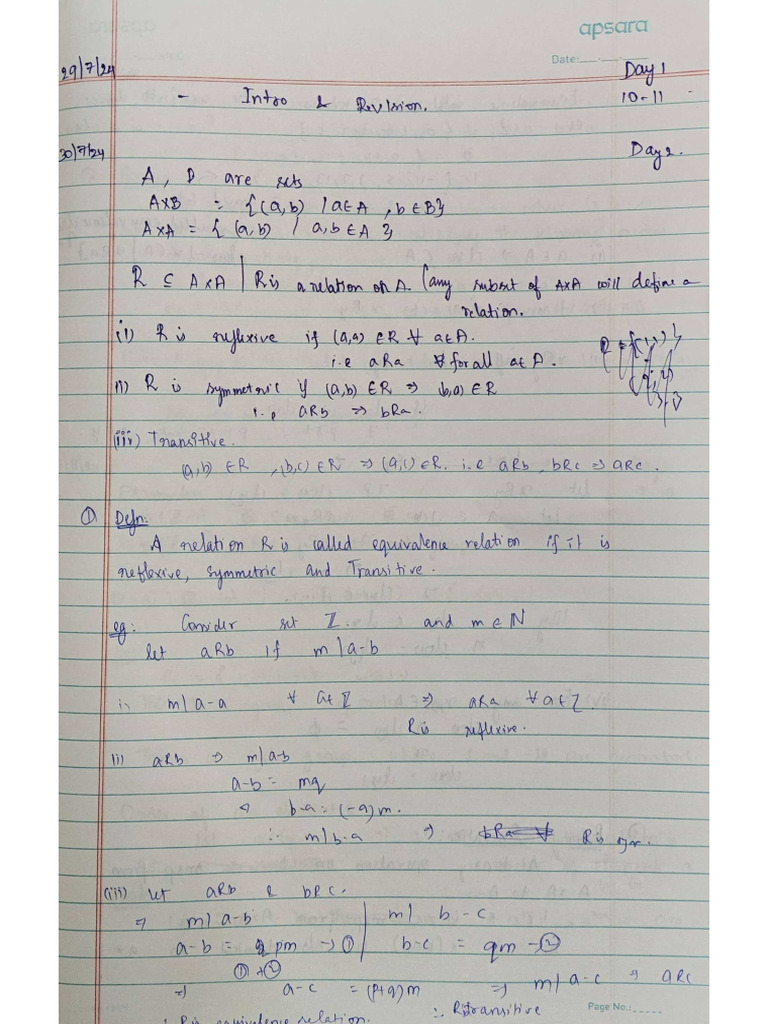 apsara
Date:
29/7/24 Day 1
- Intro & Revision. 10-11
30/7/24 Day 2.
A, B are sets
A×B = {(a,b) / a∈A , b∈B}
A×A = {(a,b) / a,b∈A }
R ⊆ A×A | R is a relation on A. (any subset of A×A will define a
relation.
(i) R is reflexive if (a,a) ∈R ∀ a∈A.
i.e aRa ∀ for all a∈A.
ii) R is symmetric if (a,b) ∈R ⇒ b,a) ∈R
i.e aRb ⇒ bRa.
(iii) Transitive.
(a,b) ∈R , (b,c) ∈R ⇒ (a,c) ∈R. i.e aRb, bRc ⇒ aRc.
① Defn:
A relation R is called equivalence relation if it is
reflexive, symmetric and Transitive.
eg: Consider set ℤ. and m∈ℕ
let aRb if m|a-b
i) m|a-a ∀ a∈ℤ ⇒ aRa ∀a∈ℤ.
R is reflexive.
ii) aRb ⇒ m|a-b
a-b = mq
b-a = (-q)m.
∴ m|b-a ⇒ bRa R is sym.
(iii) let aRb & bRc.
⇒ m|a-b | m| b-c
a-b = pm → ① | b-c = qm - ②
① + ②
⇒ a-c = (p+q)m ⇒ m|a-c ⇒ aRc
∴ R is transitive Page No.:
∴ R is equivalence relation.